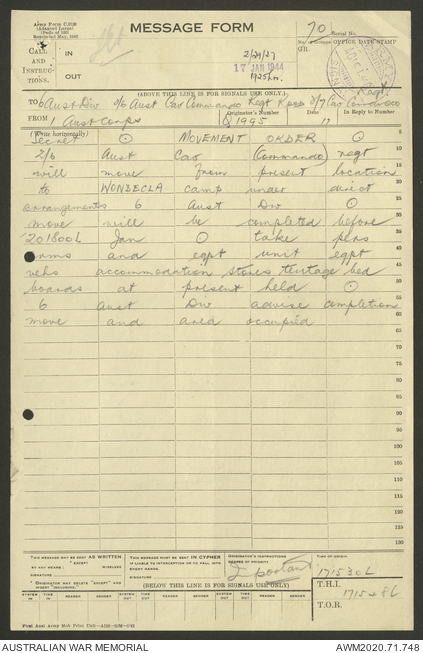 Army Form C.2128
(Adapted Large)
(Pads of 100)
MESSAGE FORM
70 Serial No.
CALL
AND
INSTRUC-
TIONS.
IN
OUT
2/29/27
17 JAN 1944
GR.
OFFICE DATE STAMP
(ABOVE THIS LINE IS FOR SIGNALS USE ONLY.)
TO 6 Aust Div 2/6 Aust Cav Commando Regt 2/7 Cav Commando Regt.
FROM 1 Aust Corps
Originator's Number
Q1995
Date
17
In Reply to Number
(Write horizontally)
Secret ⊙ MOVEMENT ORDER ⊙ 5
2/6 Aust Cav (Commando) regt 10
will move from present location 15
to WONDECLA camp under direct 20
arrangements 6 Aust Div ⊙ 25
move will be completed before 30
201800L Jan ⊙ take pers 35
arms and eqpt unit eqpt 40
vehs accommodation stores tentage bed 45
boards at present held ⊙ 50
6 Aust Div advise completion 55
move and area occupied 60
65
70
75
80
85
90
95
100
105
110
115
120
125
130
THIS MESSAGE MAY BE SENT AS WRITTEN
BY ANY MEANS. * EXCEPT WIRELESS
SIGNATURE
* ORIGINATOR MAY DELETE "EXCEPT" AND
INSERT "INCLUDING."
THIS MESSAGE MUST BE SENT IN CYPHER
IF LIABLE TO INTERCEPTION OR TO FALL INTO
ENEMY HANDS.
SIGNATURE
ORIGINATOR'S INSTRUCTIONS
DEGREE OF PRIORITY
Important
TIME OF ORIGIN
171530L
(BELOW THIS LINE IS FOR SIGNALS USE ONLY)
T.H.I.
T.O.R.
SYSTEM IN
TIME IN
READER
SENDER
SYSTEM OUT
TIME OUT
READER
SENDER
AUSTRALIAN WAR MEMORIAL
AWM2020.71.748